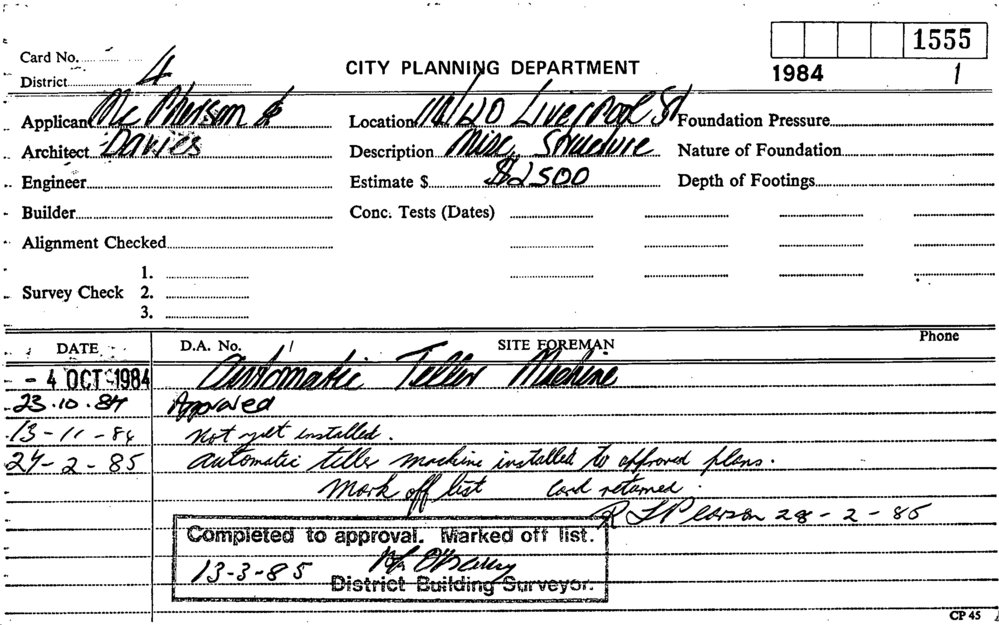 1555
Card No.
District 4
CITY PLANNING DEPARTMENT
1984 1
Applicant Mc Pherson &
Location 110/120 Liverpool St
Foundation Pressure
Architect Davies
Description Misc. Structure
Nature of Foundation
Engineer
Estimate $ $2500
Depth of Footings
Builder
Conc. Tests (Dates)
Alignment Checked
1.
Survey Check 2.
3.
DATE D.A. No. / SITE FOREMAN Phone
- 4 OCT 1984 Automatic Teller Machine
23.10.84 Approved
13-11-84 Not yet installed.
27-2-85 Automatic teller machine installed to approved plans.
Mark off list Card returned.
R J Pearson 28-2-85
Completed to approval. Marked off list.
13-3-85
District Building Surveyor.
CP 45